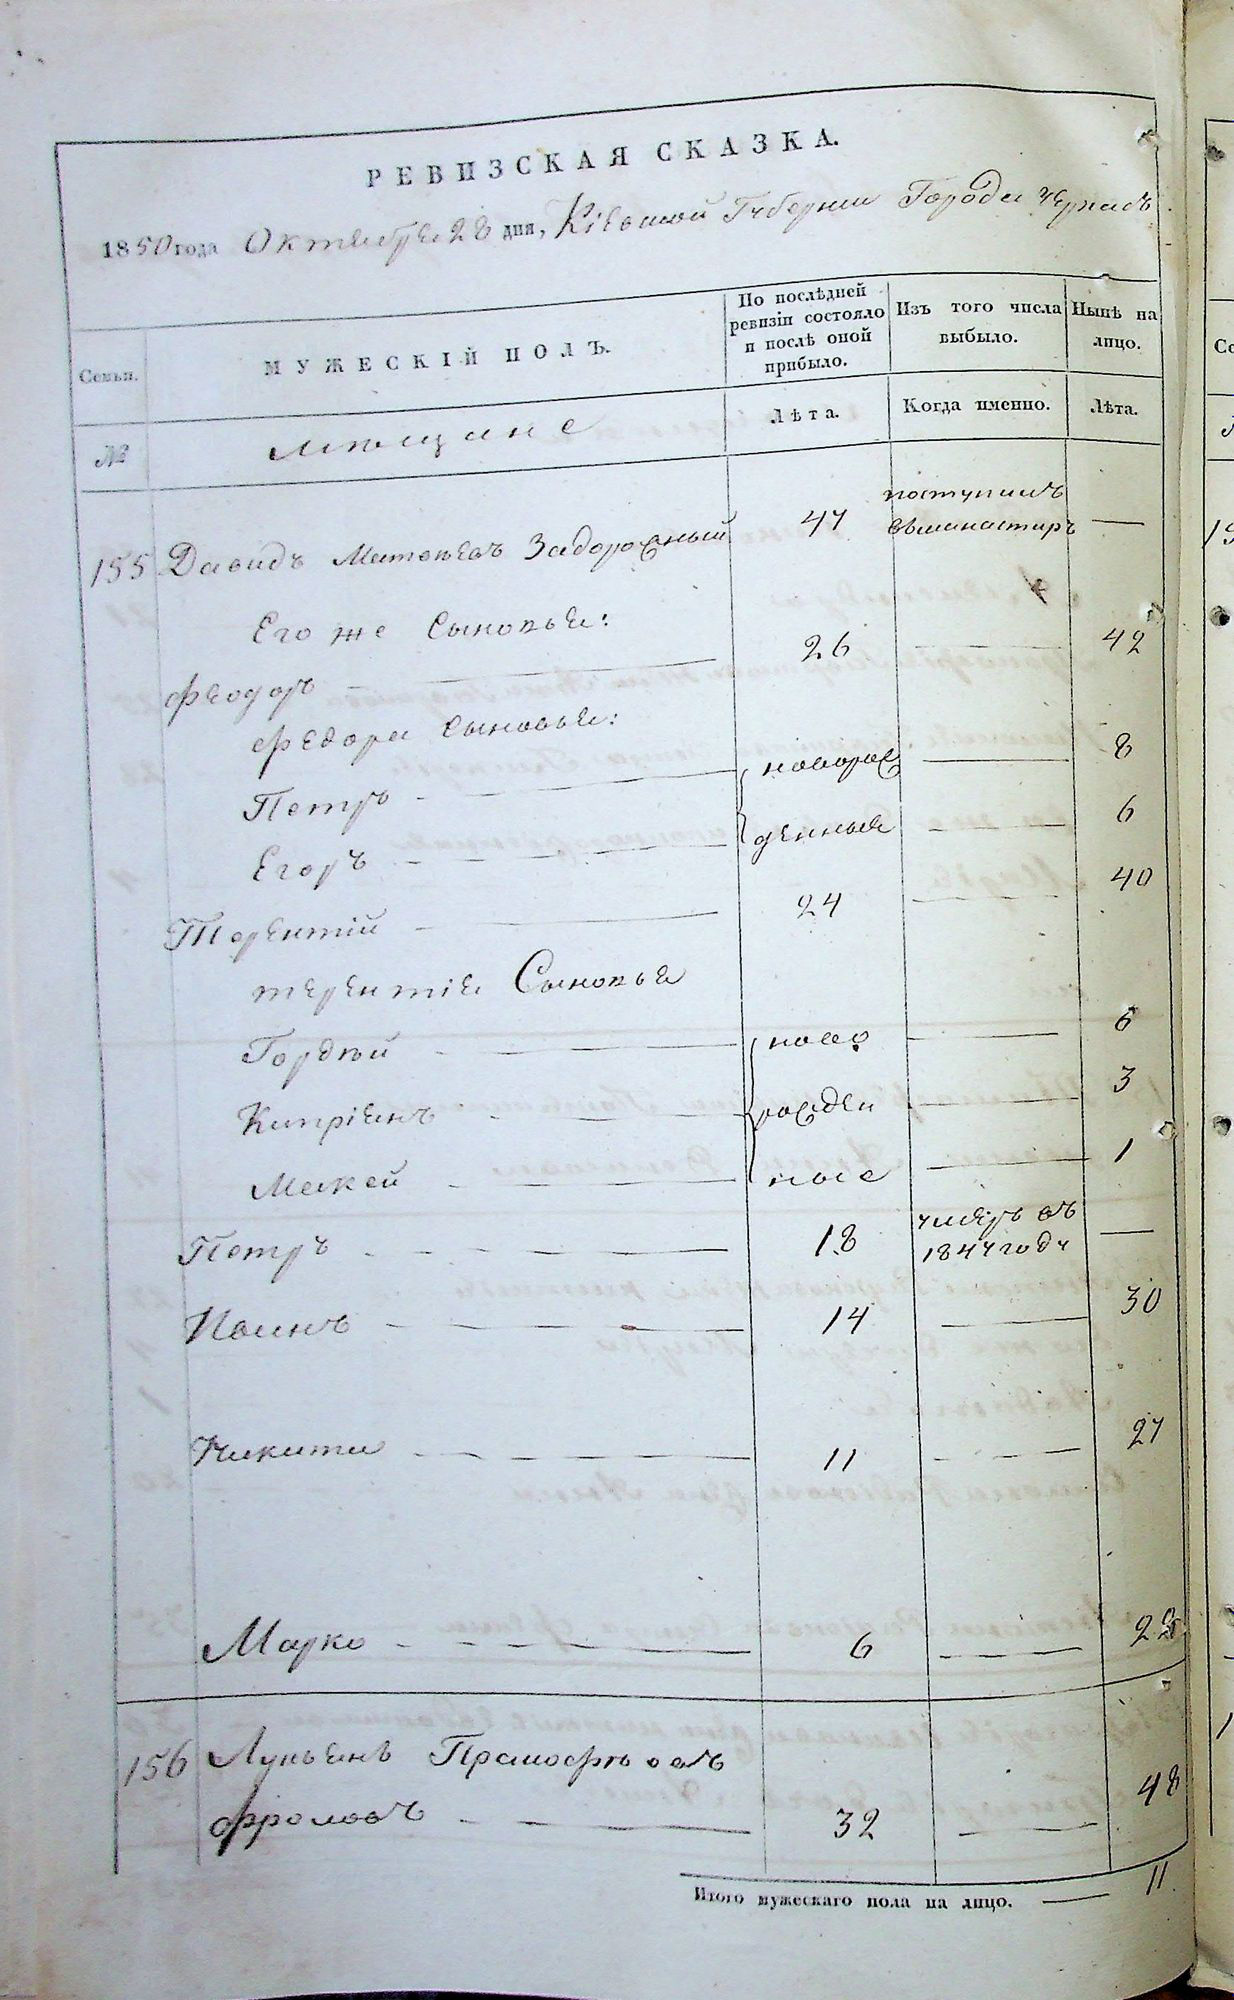 РЕВИЗСКАЯ СКАЗКА.
1850 года Октября 28 дня, Кіевской Губерніи Города Черкасъ
Семьи. МУЖЕСКІЙ ПОЛЪ. По послѣдней ревизіи состояло и послѣ оной прибыло. Изъ того числа выбыло. Нынѣ на лицо.
№ Мещане Лѣта. Когда именно. Лѣта.
155 Давидъ Матвѣевъ Задорожный 47 поступилъ въ манастиръ —
Его же Сыновья:
Феодоръ 26 — 42
Федора Сыновья:
Петръ новорож — 8
Егоръ денныя — 6
Терентій 24 — 40
Терентія Сыновья
Гордѣй ново — 6
Кипріянъ рожден — 3
Макей ные — 1
Петръ 18 умеръ въ 1844 году —
Иванъ 14 — 30
Никита 11 — 27
Марко 6 — 22
156 Лукьянъ
Фроловъ 32 — 48
Итого мужескаго пола на лицо. — 11